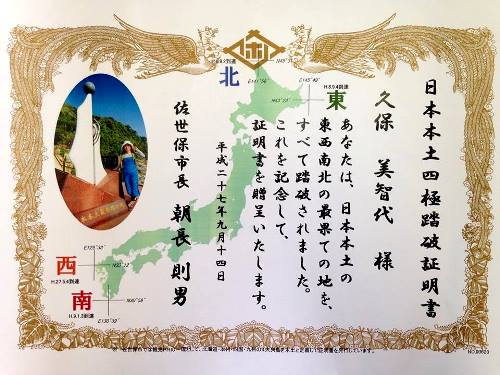 日本本土四極踏破証明書
久保 美智代 様
あなたは、日本本土の
東西南北の最果ての地を、
すべて踏破されました。
これを記念して、
証明書を贈呈いたします。
平成二十七年九月十四日
佐世保市長 朝長 則男
北
東
H.8.9.4到達
西
H.27.5.4到達
南